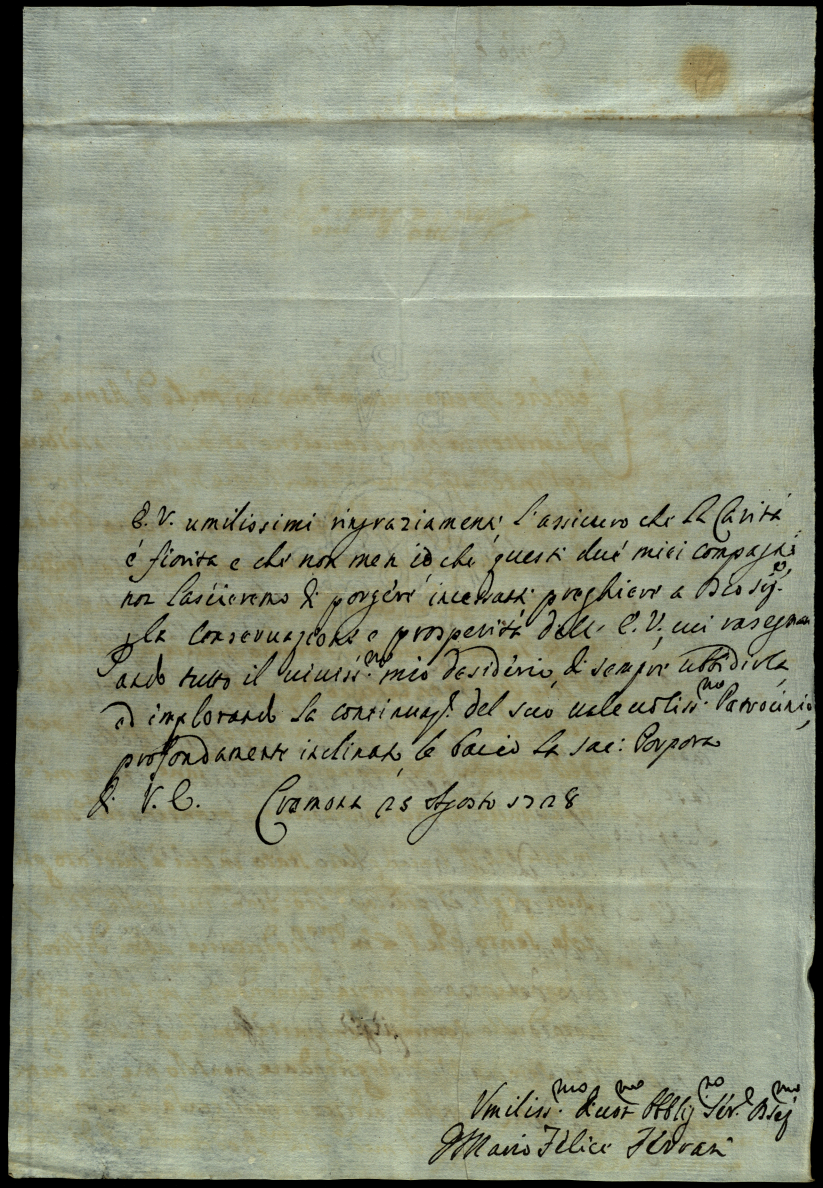 E. V. umilissimi ringraziamenti l'assicuro che la Carità
è fiorita e che non men io che questi due miei compagni
non lascieremo di porgere incessanti preghiere a Dio Sig.re
p la conservazione e prosperità dell' E. V., mi rasegnan
ando tutto il viviss.mo mio desiderio, di sempre ubbidirla,
ed implorando la continuaz.e del suo valevoliss.mo Patrocinio,
profondamente inclinato le bacio la sac: Porpora
di V. E. Cremona 25 Agosto 1728
Vmiliss.mo Divot.mo Obblig.mo Ser.e Osseq.mo
Mario Felice Ferrari